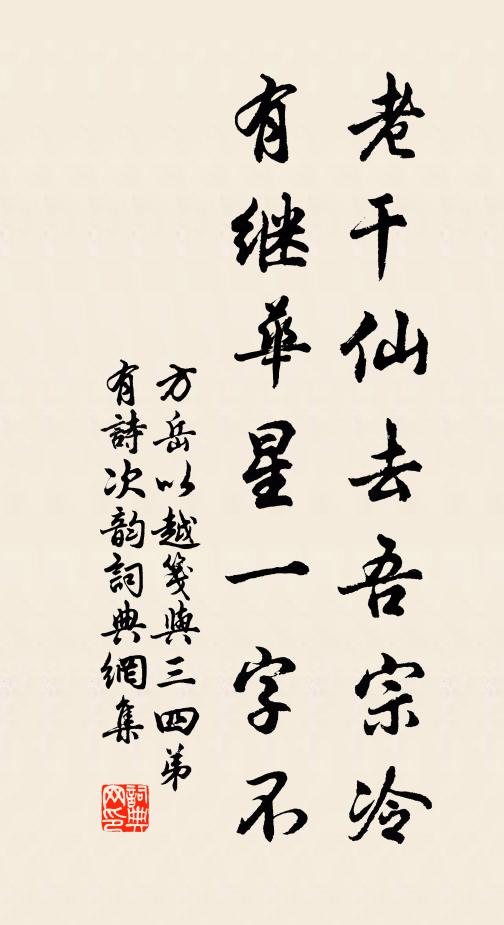 老干仙去吾宗冷
有继華星一字不
方岳以越箋與三四弟
有詩次韵詞典網集
詞典网印